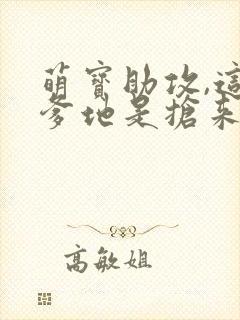 萌寶助攻,這
爹地是搶來
高敏姐